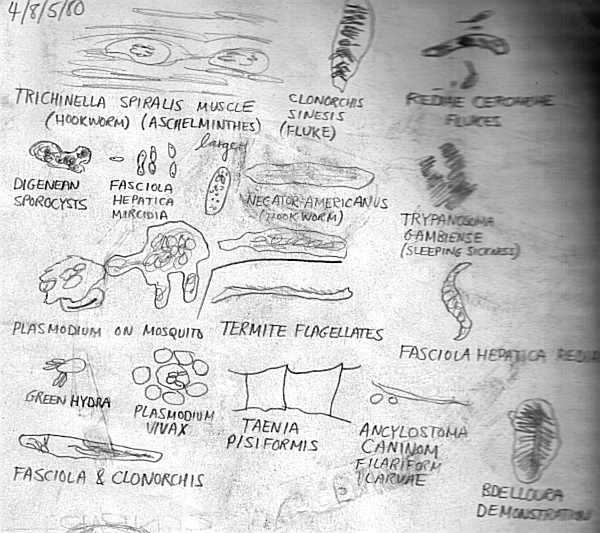 4/8/5/80
TRICHINELLA SPIRALIS MUSCLE
(HOOKWORM) (ASCHELMINTHES)
CLONORCHIS
SINESIS
(FLUKE)
REDIAE CERCARIAE
FLUKES
DIGENEAN
SPOROCYSTS
FASCIOLA
HEPATICA
MIRCIDIA
larger
NEGATOR AMERICANUS
(HOOKWORM)
TRYPANOSOMA
GAMBIENSE
(SLEEPING SICKNESS)
PLASMODIUM ON MOSQUITO
TERMITE FLAGELLATES
FASCIOLA HEPATICA REDIA
GREEN HYDRA
PLASMODIUM
VIVAX
TAENIA
PISIFORMIS
ANCYLOSTOMA
CANINOM
FILARIFORM
LARVAE
FASCIOLA & CLONORCHIS
BDELLOURA
DEMONSTRATION